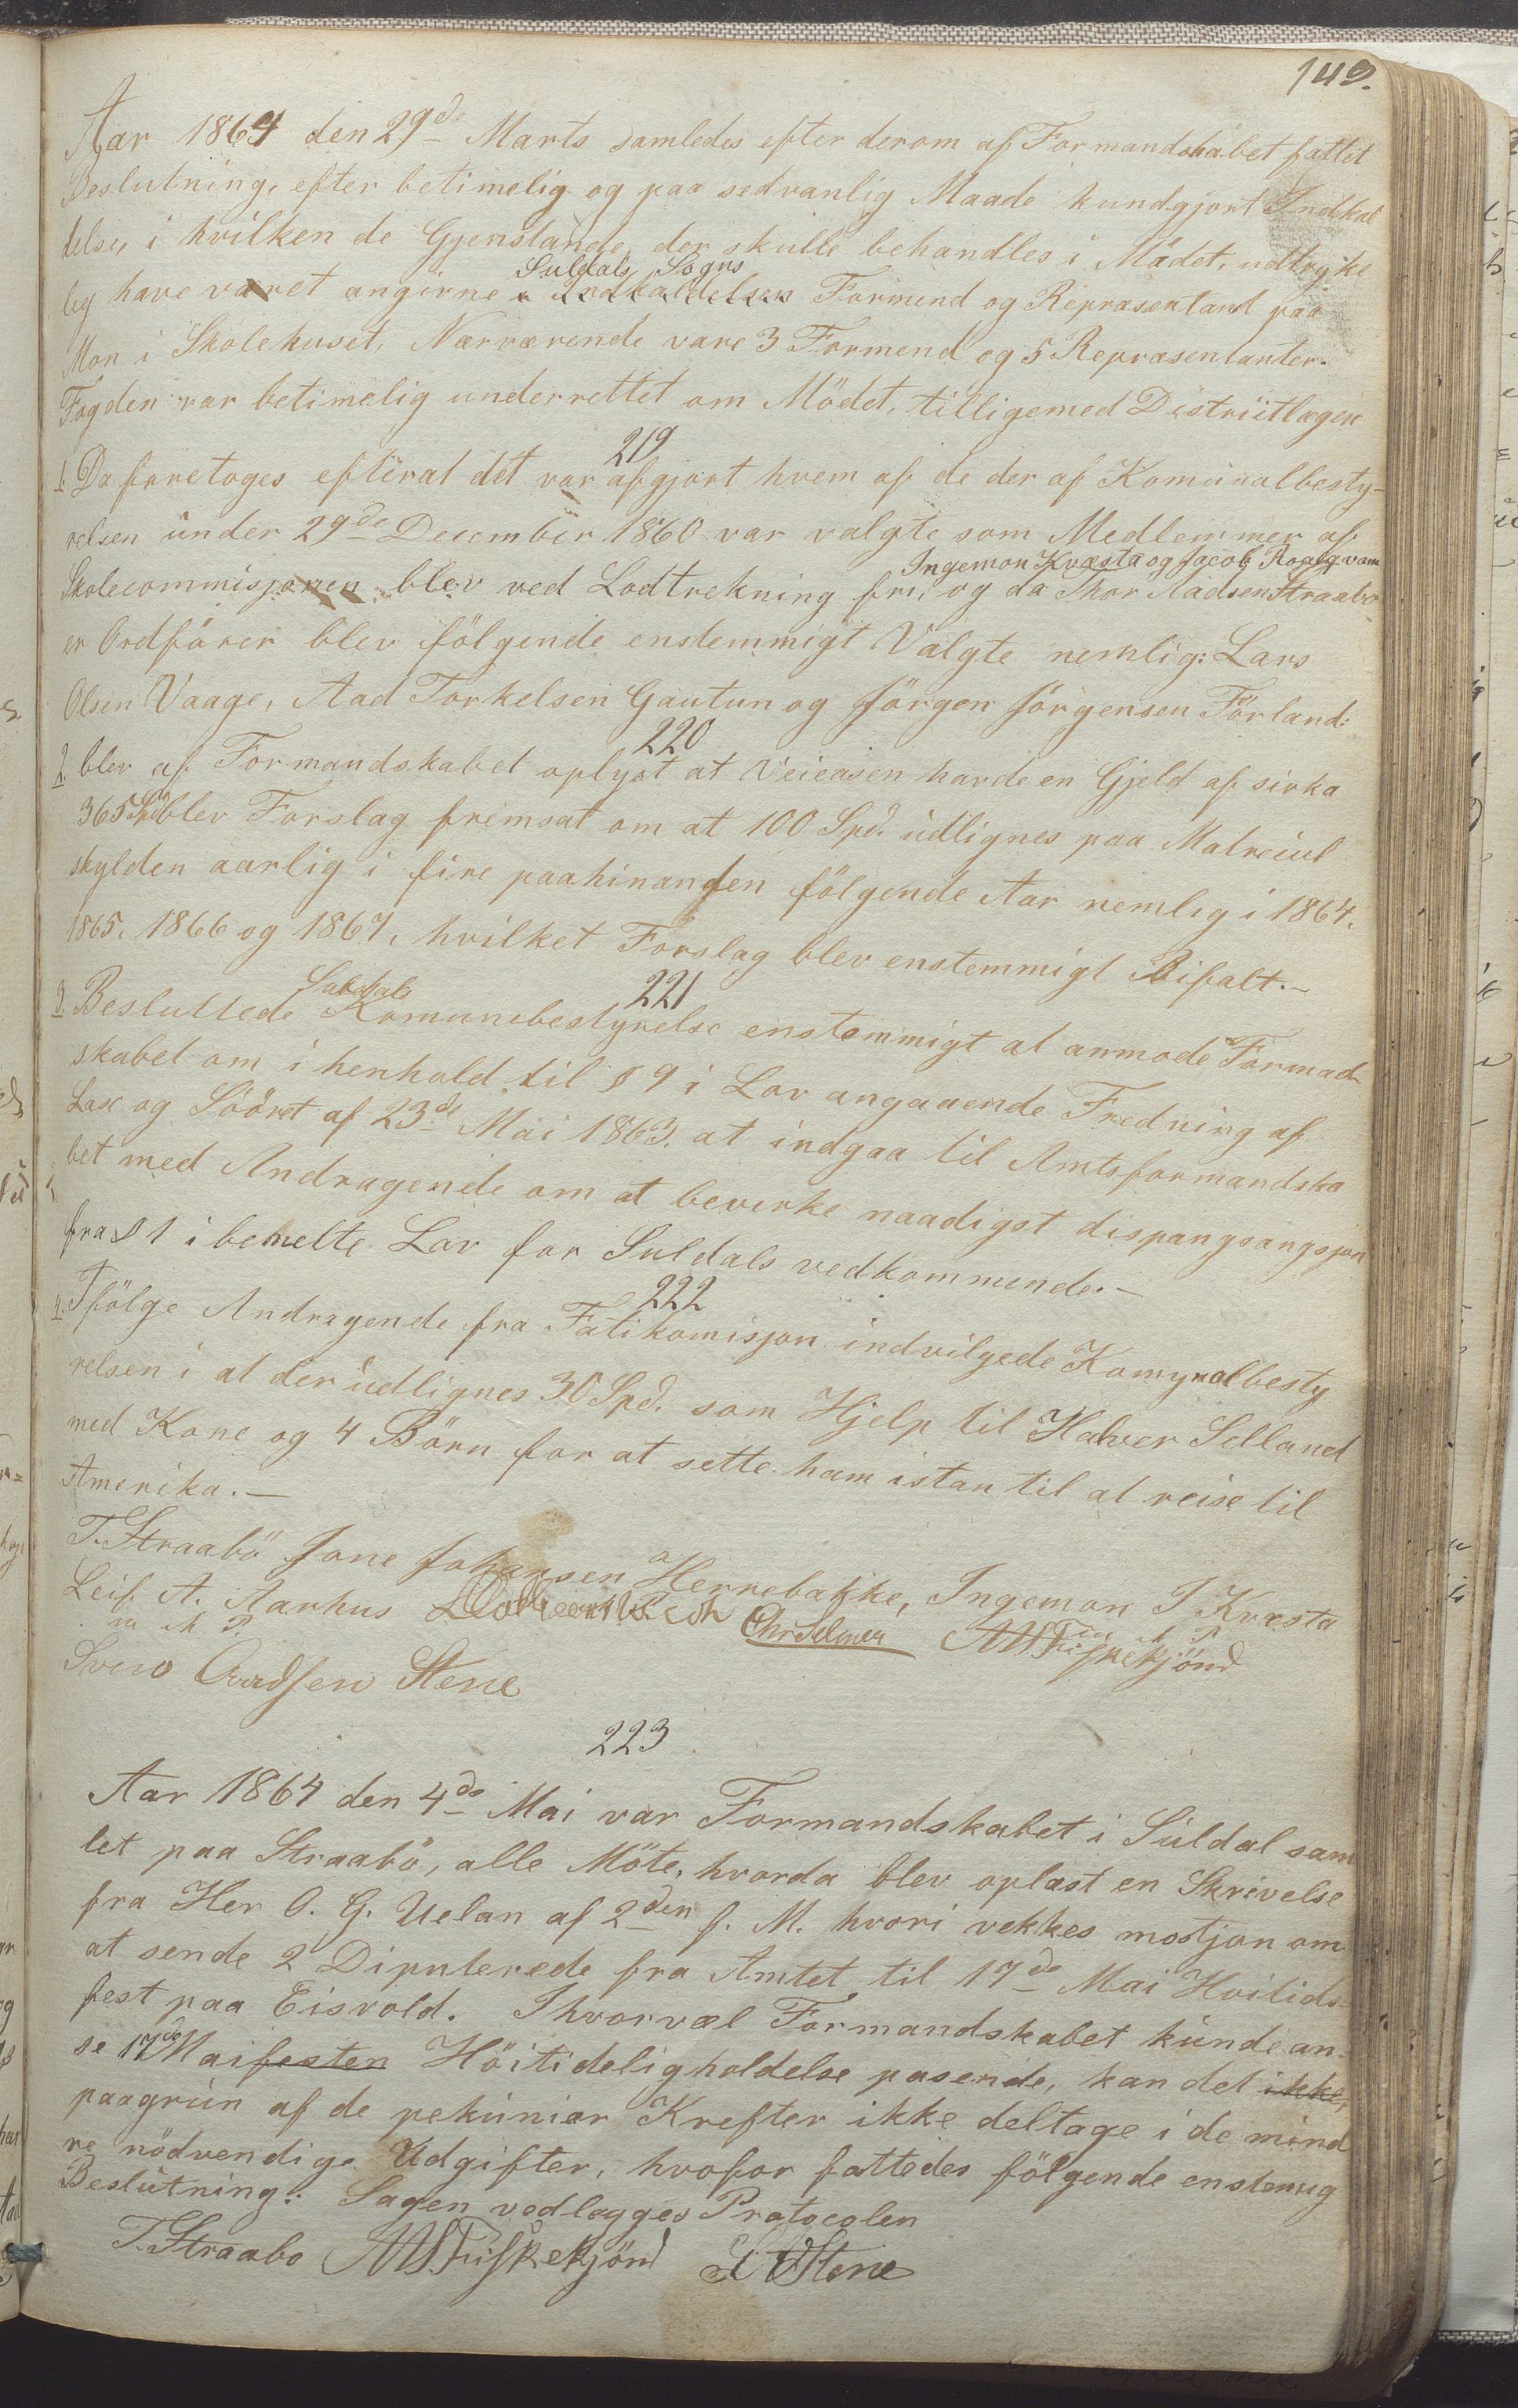 149.
Aar 1864 den 29de Marts samledes efter derom af Formandskabet fattet
Beslutning, efter betimelig og paa sedvanlig Maade kundgjort Indkal
delse, i hvilken de Gjenstande, der skulle behandles i Mödet, udtryke
lig have været angivne Suldals Sogns Formend og Repræsentant paa
Mon i Skolehuset, Nærværende vare 3 Formend og 5 Repræsentanter.
Fogden var betimelig underrettet om Mödet, tilligemed Distriktlægen
219
1. Da foretoges efterat det var afgjort hvem af de der af Komunalbesty-
relsen under 29de December 1860 var valgte som Medlemmer af
Skolecommisjonen blev ved Lodtrekning fri, Ingemon Kvæsta og Jacob Roalqvam og da Thor Aadsen Straabø
er Ordförer blev fölgende enstemmigt Valgte nemlig: Lars
Olsen Vaage, Aad Torkelsen Gautun og Jörgen Jörgensen Förland:
220
2. blev af Formandskabet oplyst at Veicasen havde en Gjeld af sirka
365 Spd blev Forslag fremsat om at 100 Spd. udlignes paa Matreiul
skylden aarlig i fire paahinanden fölgende Aar nemlig i 1864.
1865. 1866 og 1867, hvilket Forslag blev enstemmigt Bifalt.-
221
3. Besluttede Suldals Komunebestyrelse enstemmigt at anmode Formad
skabet om i henhold til § 9 i Lov angaaende Fredning af
Lax og Söóret af 23de Mai 1863. at indgaa til Amtsformandska
bet med Andragende om at bevirke naadigst dispangsangsjon
fra § 1 i bemelte Lov for Suldals vedkommende.-
222
4. Ifölge Andragende fra Fatikomisjon indvilgede Komynalbesty
relsen i at der udlignes 30 Spd. som Hjelp til Halver Selland
med Kone og 4 Börn for at sette ham istan til at reise til
Amerika.-
T. Straabö Jone Johansen Herrebakke, Ingemon I Kvæsta
Leif A. Aarhus Chr Selmer m P
m P. A S Fiskekjönd
Svend Aadsen Stene
223
Aar 1864 den 4de Mai var Formandskabet i Suldal sam
let paa Straabö, alle Möte, hvorda blev oplæst en Skrivelse
fra Her O. G. Uelan af 2den f. M. hvori vekkes mostjon om
at sende 2 Diputerede fra Amtet til 17de Mai Hoitids-
fest paa Eisvold. Ihvorvæl Formandskabet kunde an-
se 17de Maifesten Höitideligholdelse pasende, kan det ikke,
paagrun af de pekuniær Krefter ikke deltage i de mind
re nödvendige Udgifter, hvofor fattedes fölgende enstemig
Beslutning: Sagen vedlægges Protocolen
T. Straabo A S Fiskekjönd S A Stene